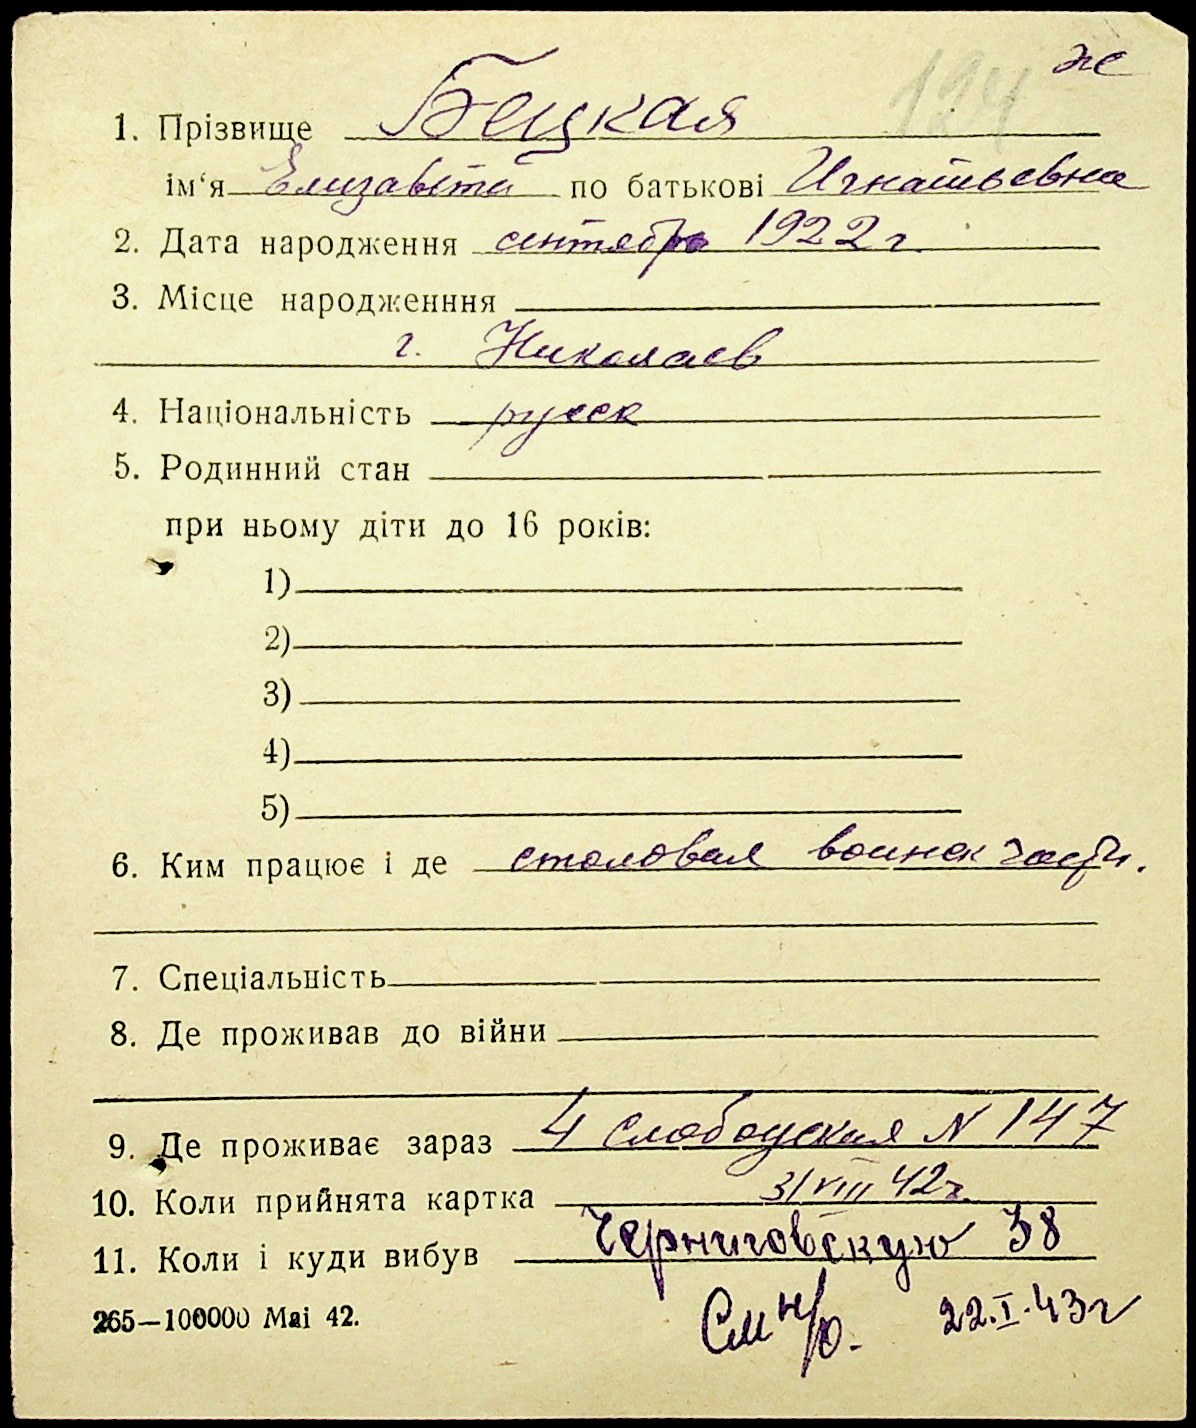 124 ж
1. Прізвище Бецкая
ім‘я Елизавета по батькові Игнатьевна
2. Дата народження сентябрь 1922 г.
3. Місце народженння
г. Николаев
4. Національність русск
5. Родинний стан
при ньому діти до 16 років:
1)
2)
3)
4)
5)
6. Ким працює і де столовая воинск части.
7. Спеціальність
8. Де проживав до війни
9. Де проживає зараз 4 Слободская N 147
10. Коли прийнята картка 31/VIII 42 г.
11. Коли і куди вибув Черниговскую 38
265—100000 Mai 42. См н/о. 22.I.43 г